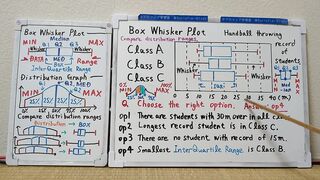 Box Whisker Plot
Median
Q1 Q2 Q3
MIN MAX
Whisker Whisker
DATA MED
Box Range
InterQuartile Range
Distribution Graph
MIN MED MAX
25% 25% 25% 25%
Compare distribution ranges
Distribution → BOX
Box Whisker Plot Handball throwing
Compare distribution ranges record of students
Class A
Class B
Class C
Whisker Whisker
MIN MAX
25% 25% 25% 25%
0 5 10 15 20 25 30 35 40 (m)
Q. Choose the right option. Answer op4
op1 There are students with 30m over in all
op2 Longest record student is in Class C.
op3 There are no student with record of 15m.
op4 Smallest InterQuartile Range is Class B.